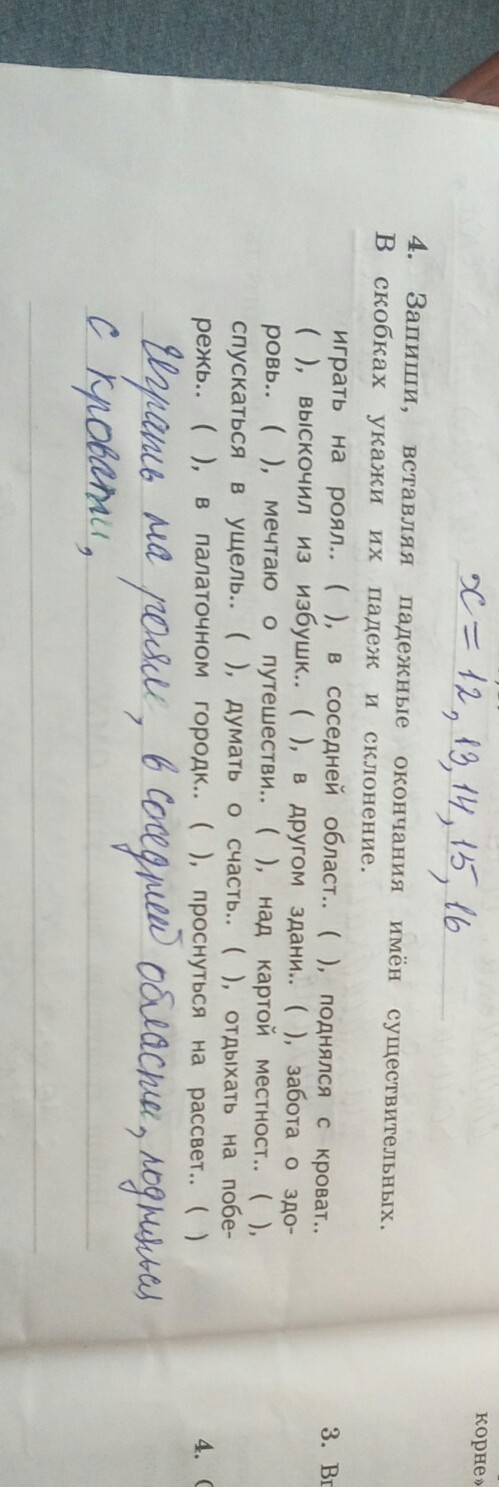 x = 12, 13, 14, 15, 16
4. Запиши, вставляя падежные окончания имён существительных.
В скобках укажи их падеж и склонение.
играть на роял.. ( ), в соседней област.. ( ), поднялся с кроват..
( ), выскочил из избушк.. ( ), в другом здани.. ( ), забота о здо-
ровь.. ( ), мечтаю о путешестви.. ( ), над картой местност.. ( ),
спускаться в ущель.. ( ), думать о счасть.. ( ), отдыхать на побе-
режь.. ( ), в палаточном городк.. ( ), проснуться на рассвет.. ( )
Играть на рояле, в соседней области, поднялся
с кровати,
корне»
3.
4.